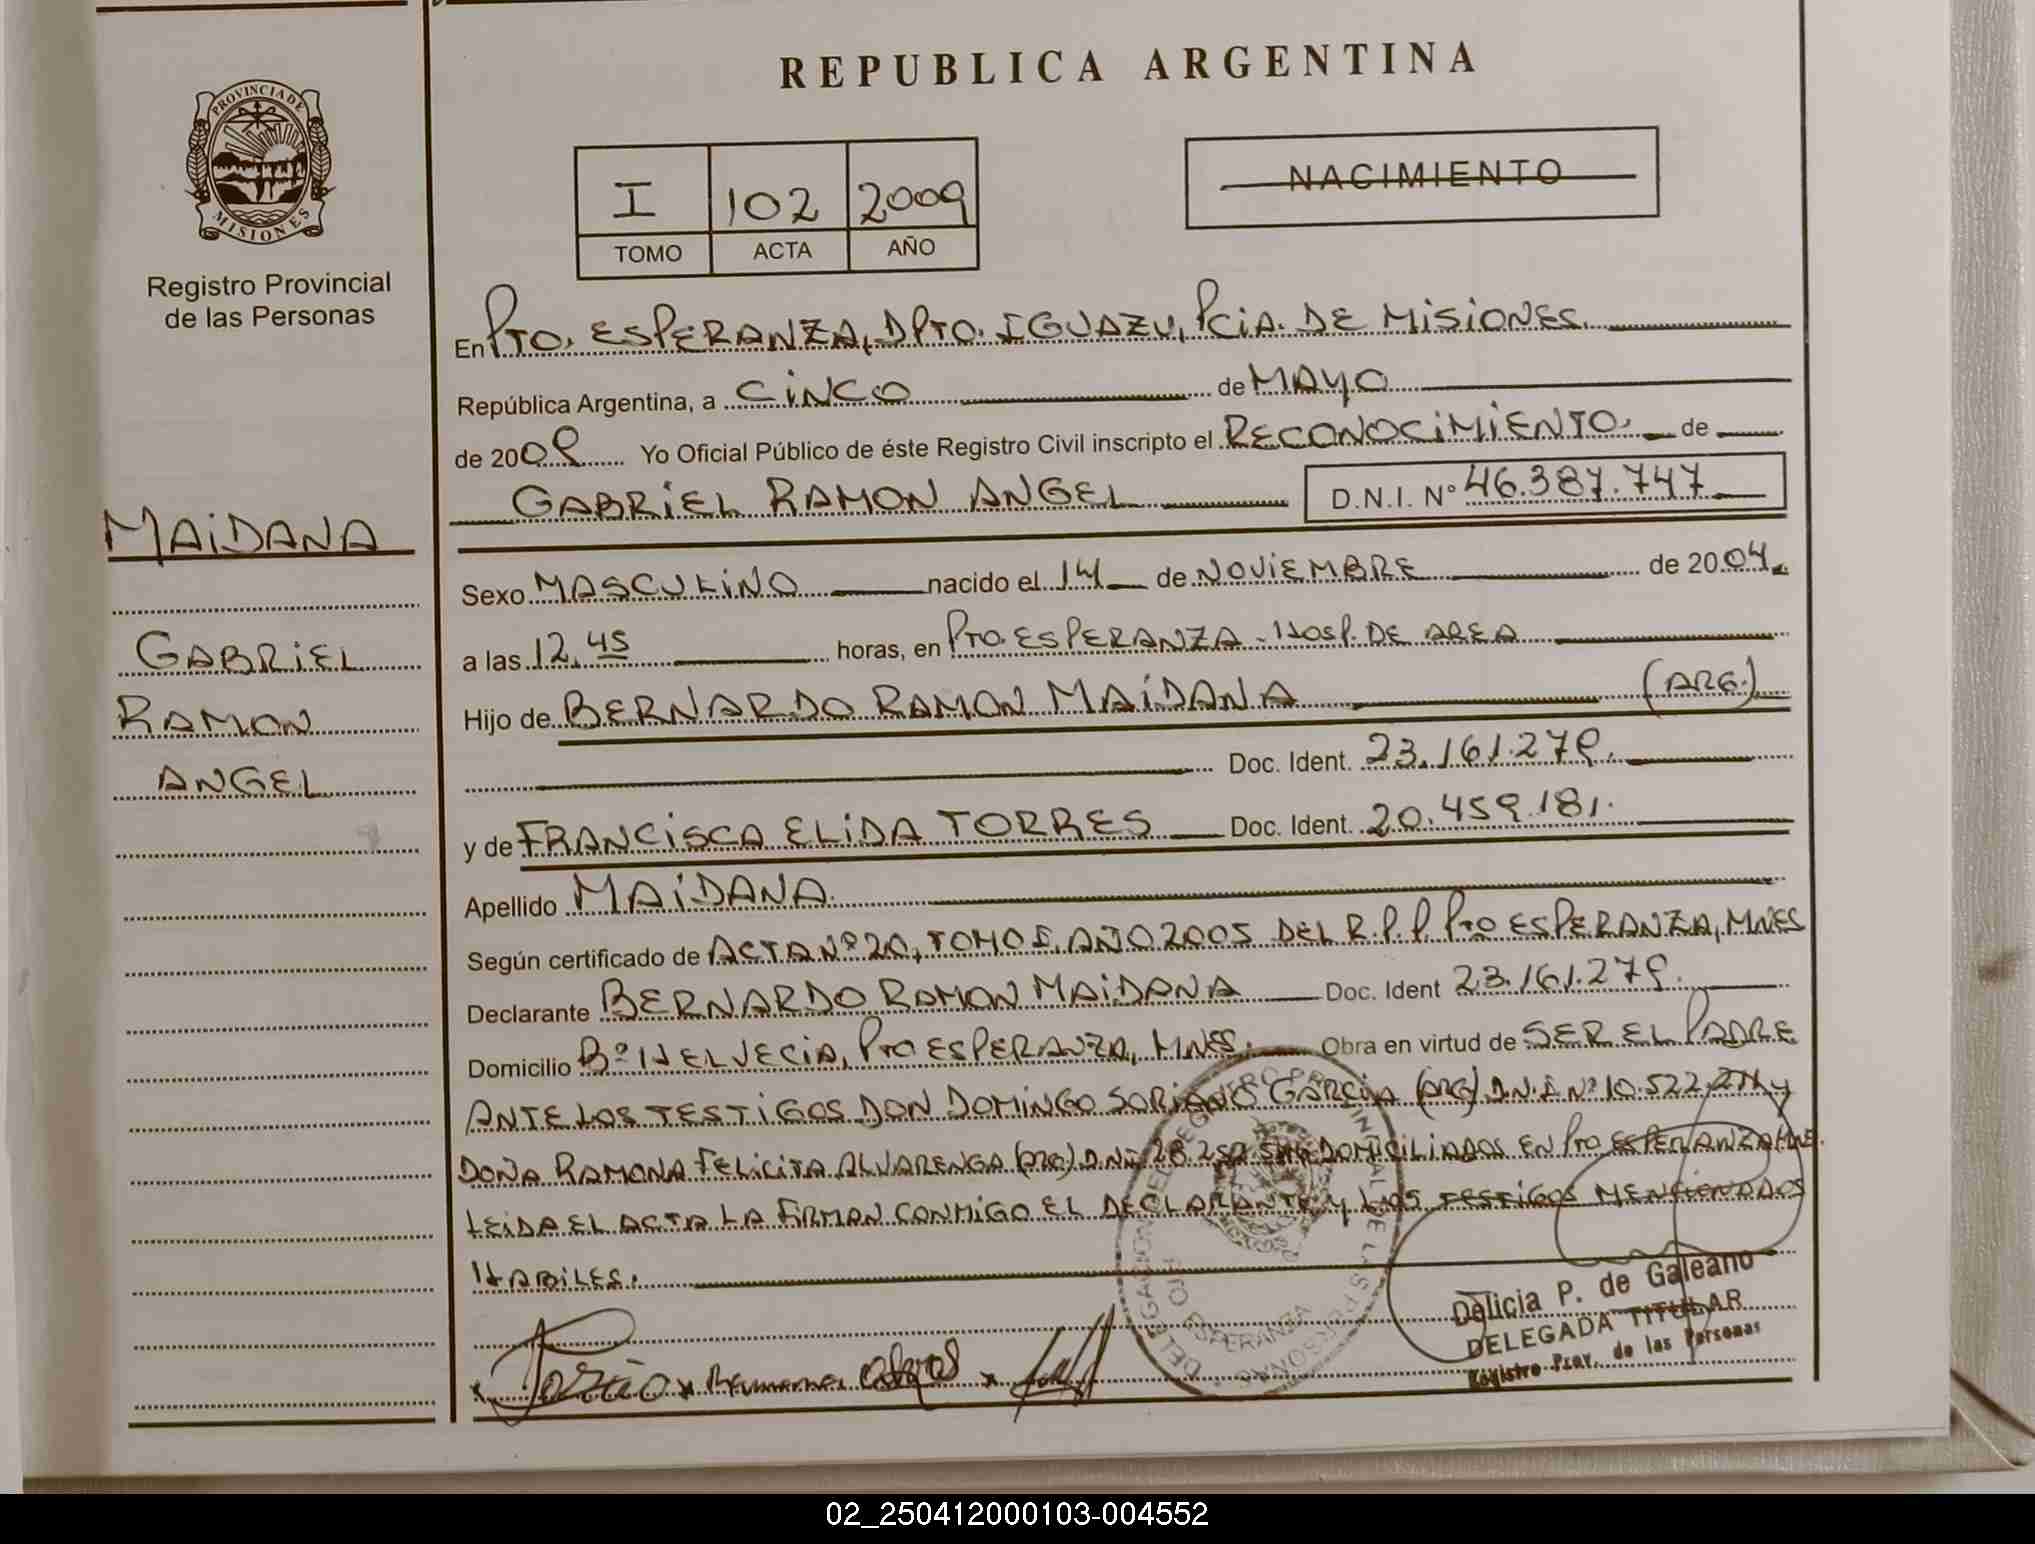 REPUBLICA ARGENTINA
PROVINCIA DE
MISIONES
Registro Provincial
de las Personas
MAIDANA
GABRIEL
RAMON
ANGEL
I 102 2009
TOMO ACTA AÑO
NACIMIENTO
En PTO. ESPERANZA, DPTO. IGUAZU, PCIA. DE MISIONES.
República Argentina, a CINCO de MAYO
de 2009 Yo Oficial Público de éste Registro Civil inscripto el RECONOCIMIENTO. de
GABRIEL RAMON ANGEL D.N.I. Nº 46.387.747
Sexo MASCULINO nacido el 14 de NOVIEMBRE de 2004
a las 12,45 horas, en PTO. ESPERANZA - HOSP. DE AREA
Hijo de BERNARDO RAMON MAIDANA (ARG.)
Doc. Ident. 23.161.279.
y de FRANCISCA ELIDA TORRES Doc. Ident. 20.459.181.
Apellido MAIDANA
Según certificado de ACTA Nº 20, TOMO I, AÑO 2005 DEL R.P.P. PTO ESPERANZA, MNES
Declarante BERNARDO RAMON MAIDANA Doc. Ident 23.161.279.
Domicilio Bº HELVECIA, PTO ESPERANZA, MNES. Obra en virtud de SER EL PADRE
ANTE LOS TESTIGOS DON DOMINGO SORIANO GARCIA (ARG) D.N.I. Nº 10.522 y
DOÑA RAMONA FELICITA ALVARENGA (ARG) D.N.I. 28.252 DOMICILIADOS EN PTO ESPERANZA MNES.
LEIDA EL ACTA LA FIRMAN CONMIGO EL DECLARANTE Y LOS TESTIGOS MENCIONADOS
HABILES.
Delicia P. de Galeano
DELEGADA TITULAR
Registro Prov. de las Personas
02_250412000103-004552